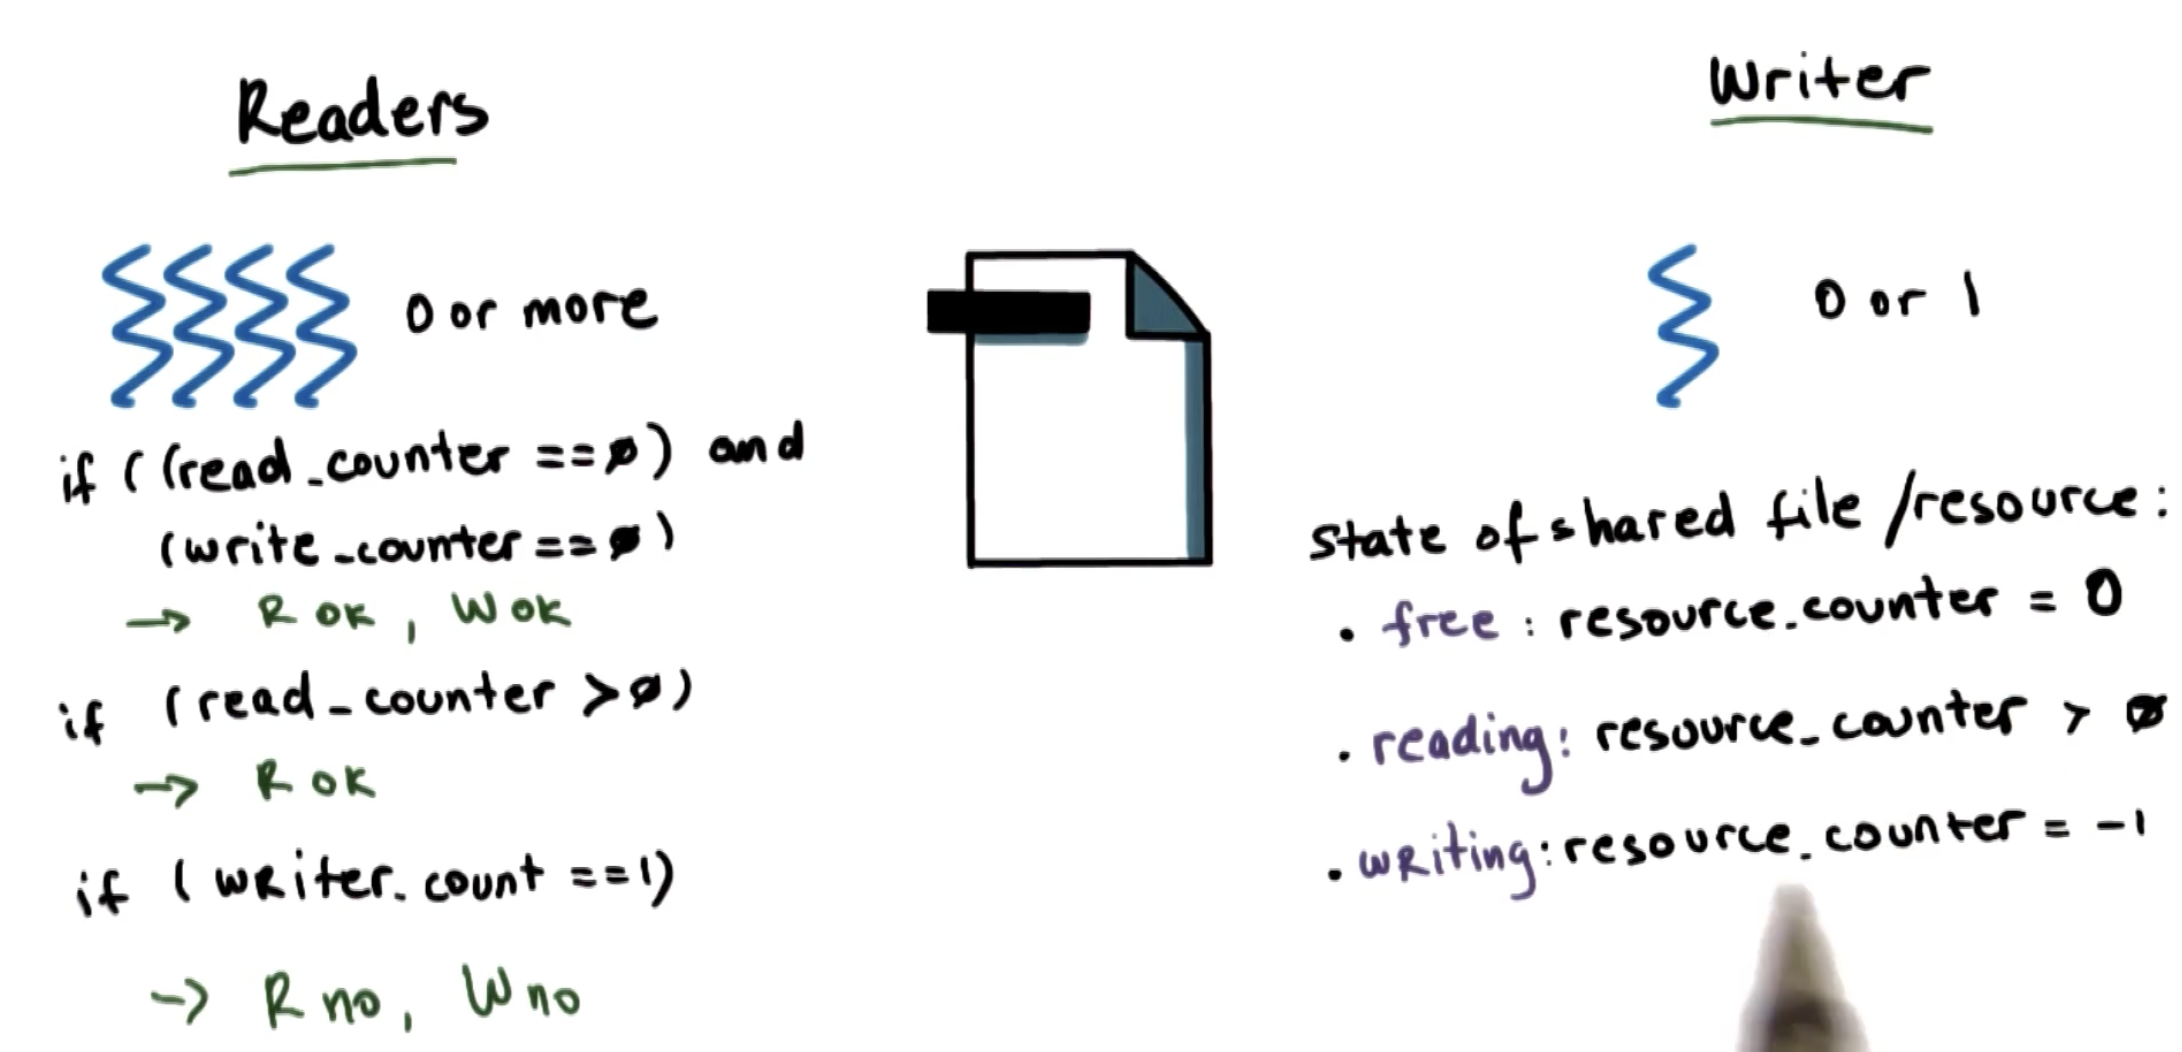 Readers
0 or more
if ((read_counter == ø) and
(write_counter == ø)
→ R OK, W OK
if (read_counter > ø)
→ R OK
if (writer_count == 1)
→ R no, W no
Writer
0 or 1
state of shared file /resource:
• free : resource_counter = 0
• reading: resource_counter > ø
• writing: resource_counter = -1